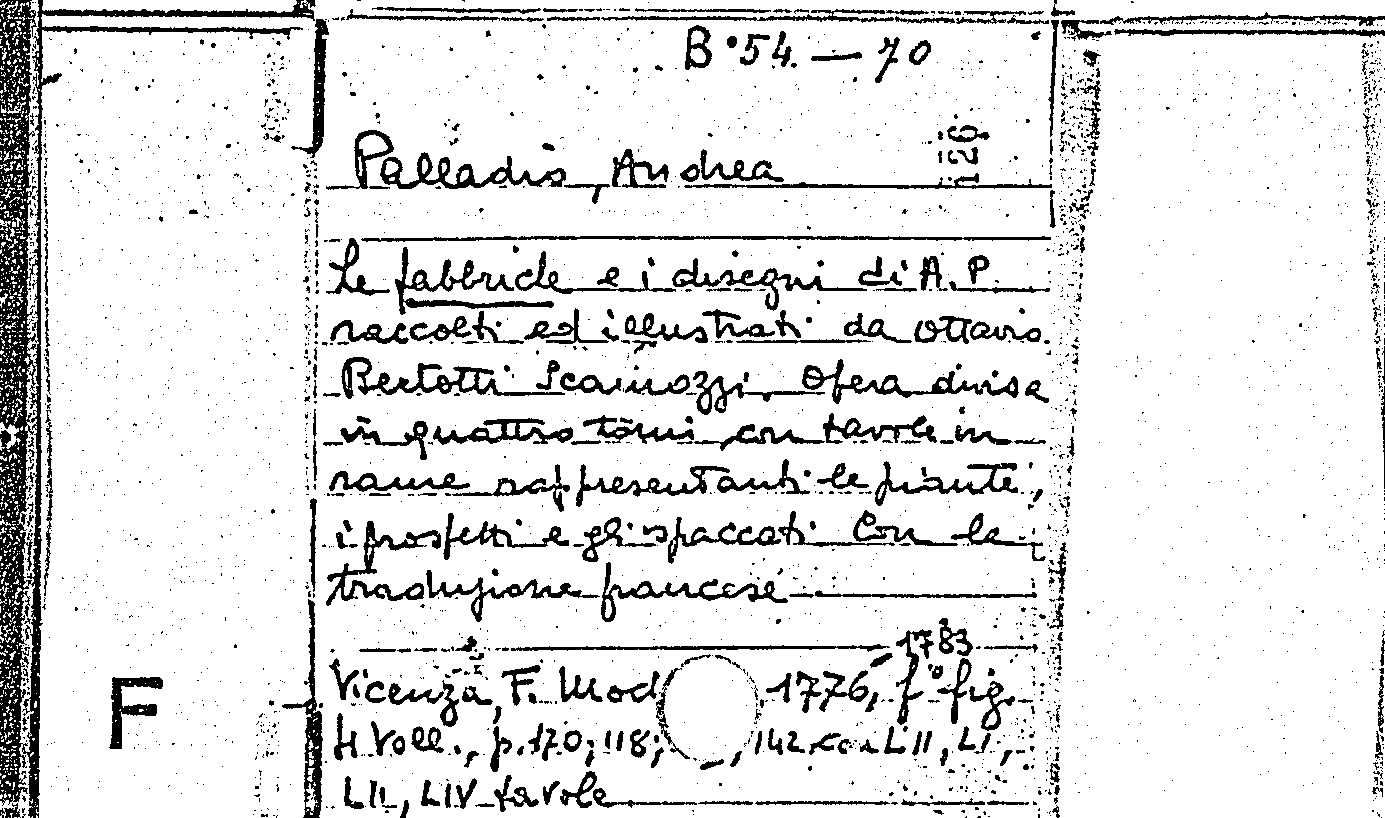 B°54.—70
126
Palladio, Andrea
Le fabbriche e i disegni di A.P.
raccolti ed illustrati da Ottavio
Bertotti Scamozzi. Opera divisa
in quattro tomi, con tavole in
rame rappresentanti le piante,
i prospetti e gli spaccati Con la
traduzione francese
Vicenza, F. Mod 1776,-1783 f° fig.
F
4 Voll., p. 170; 118; , 142. con LIII, LI,
LII, LIV tavole